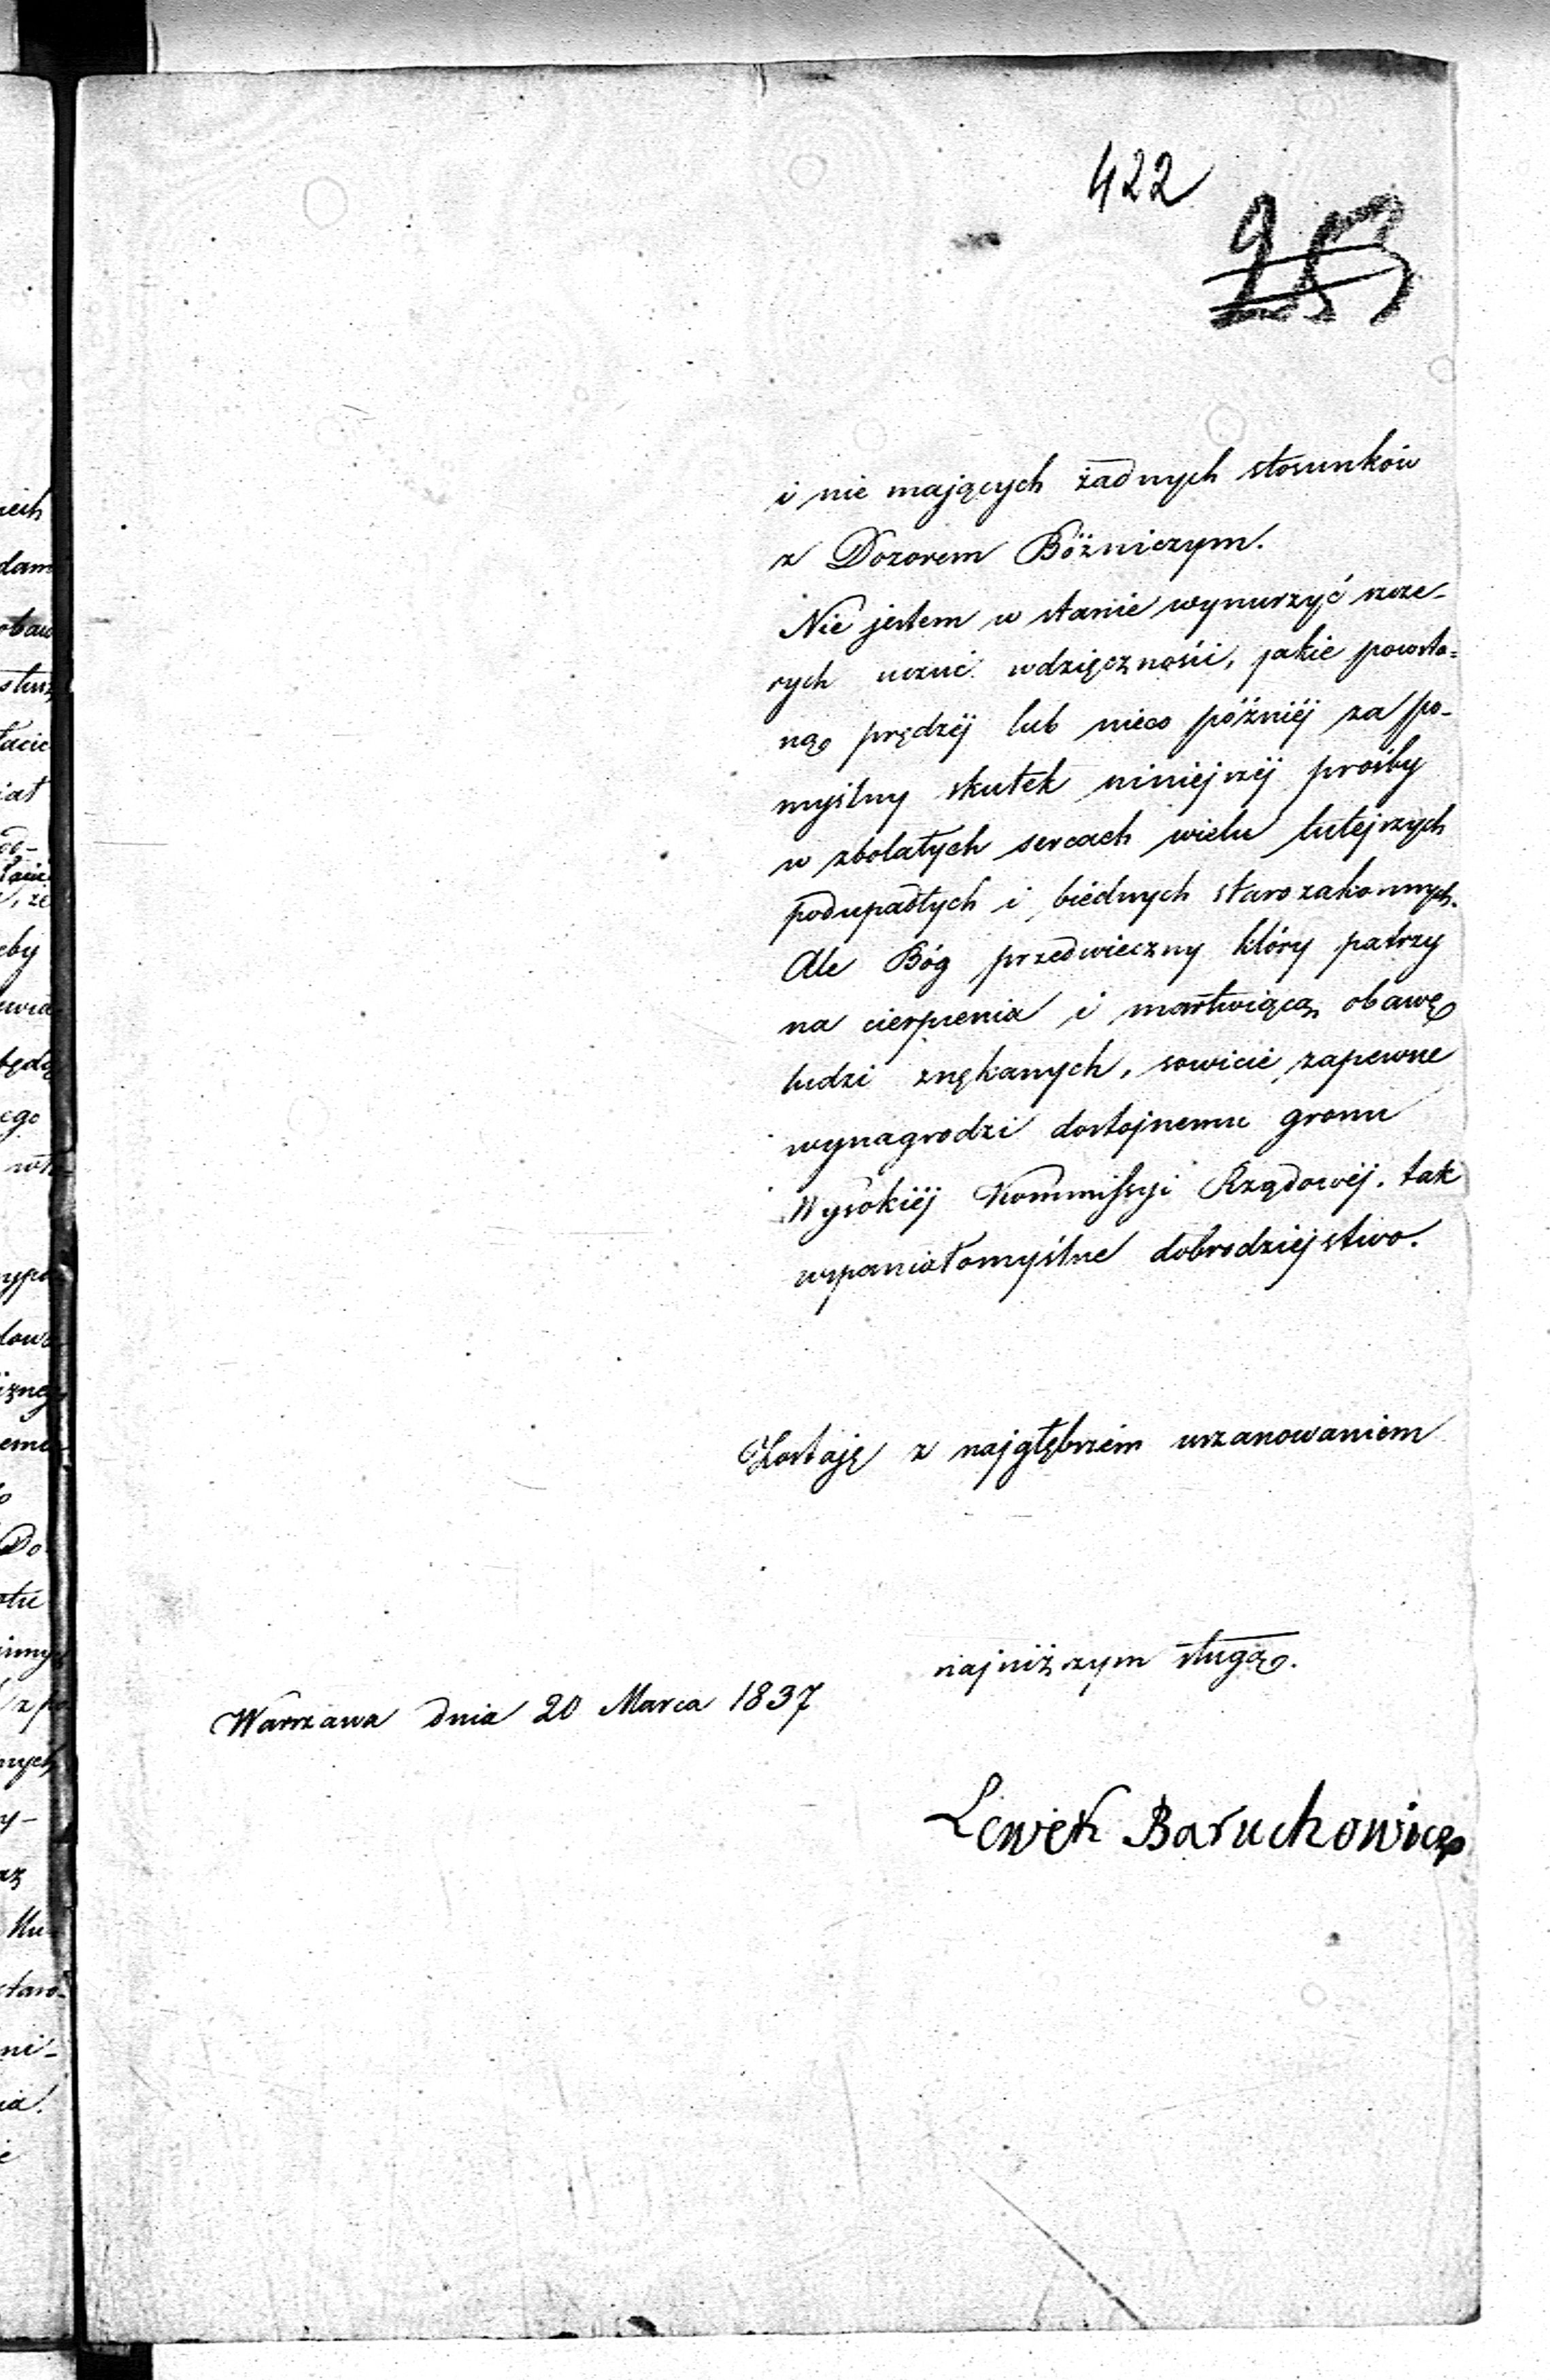 422
253
i nie mających żadnych stosunków
z Dozorem Bóżniczym.
Nie jestem w stanie wynurzyć szcze-
rych uczuć wdzięczności, jakie powsta=
ną prędzéj lub nieco późniéj za po-
myślny skutek niniejszéj prośby
w zbolałych sercach wielu tutejszych
podupadłych i biédnych starozakonnych.
Ale Bóg przedwieczny który patrzy
na cierpienia i martwiącą obawę
ludzi znękanych, sowicie zapewne
wynagrodzi dostojnemu gronu
Wysokiéj Kommissyi Rządowéj, tak
wspaniałomyślne dobrodziejstwo.
Zostaję z najgłębszém uszanowaniem
najniższym sługą.
Warszawa dnia 20 Marca 1837
Lewek Baruchowicz